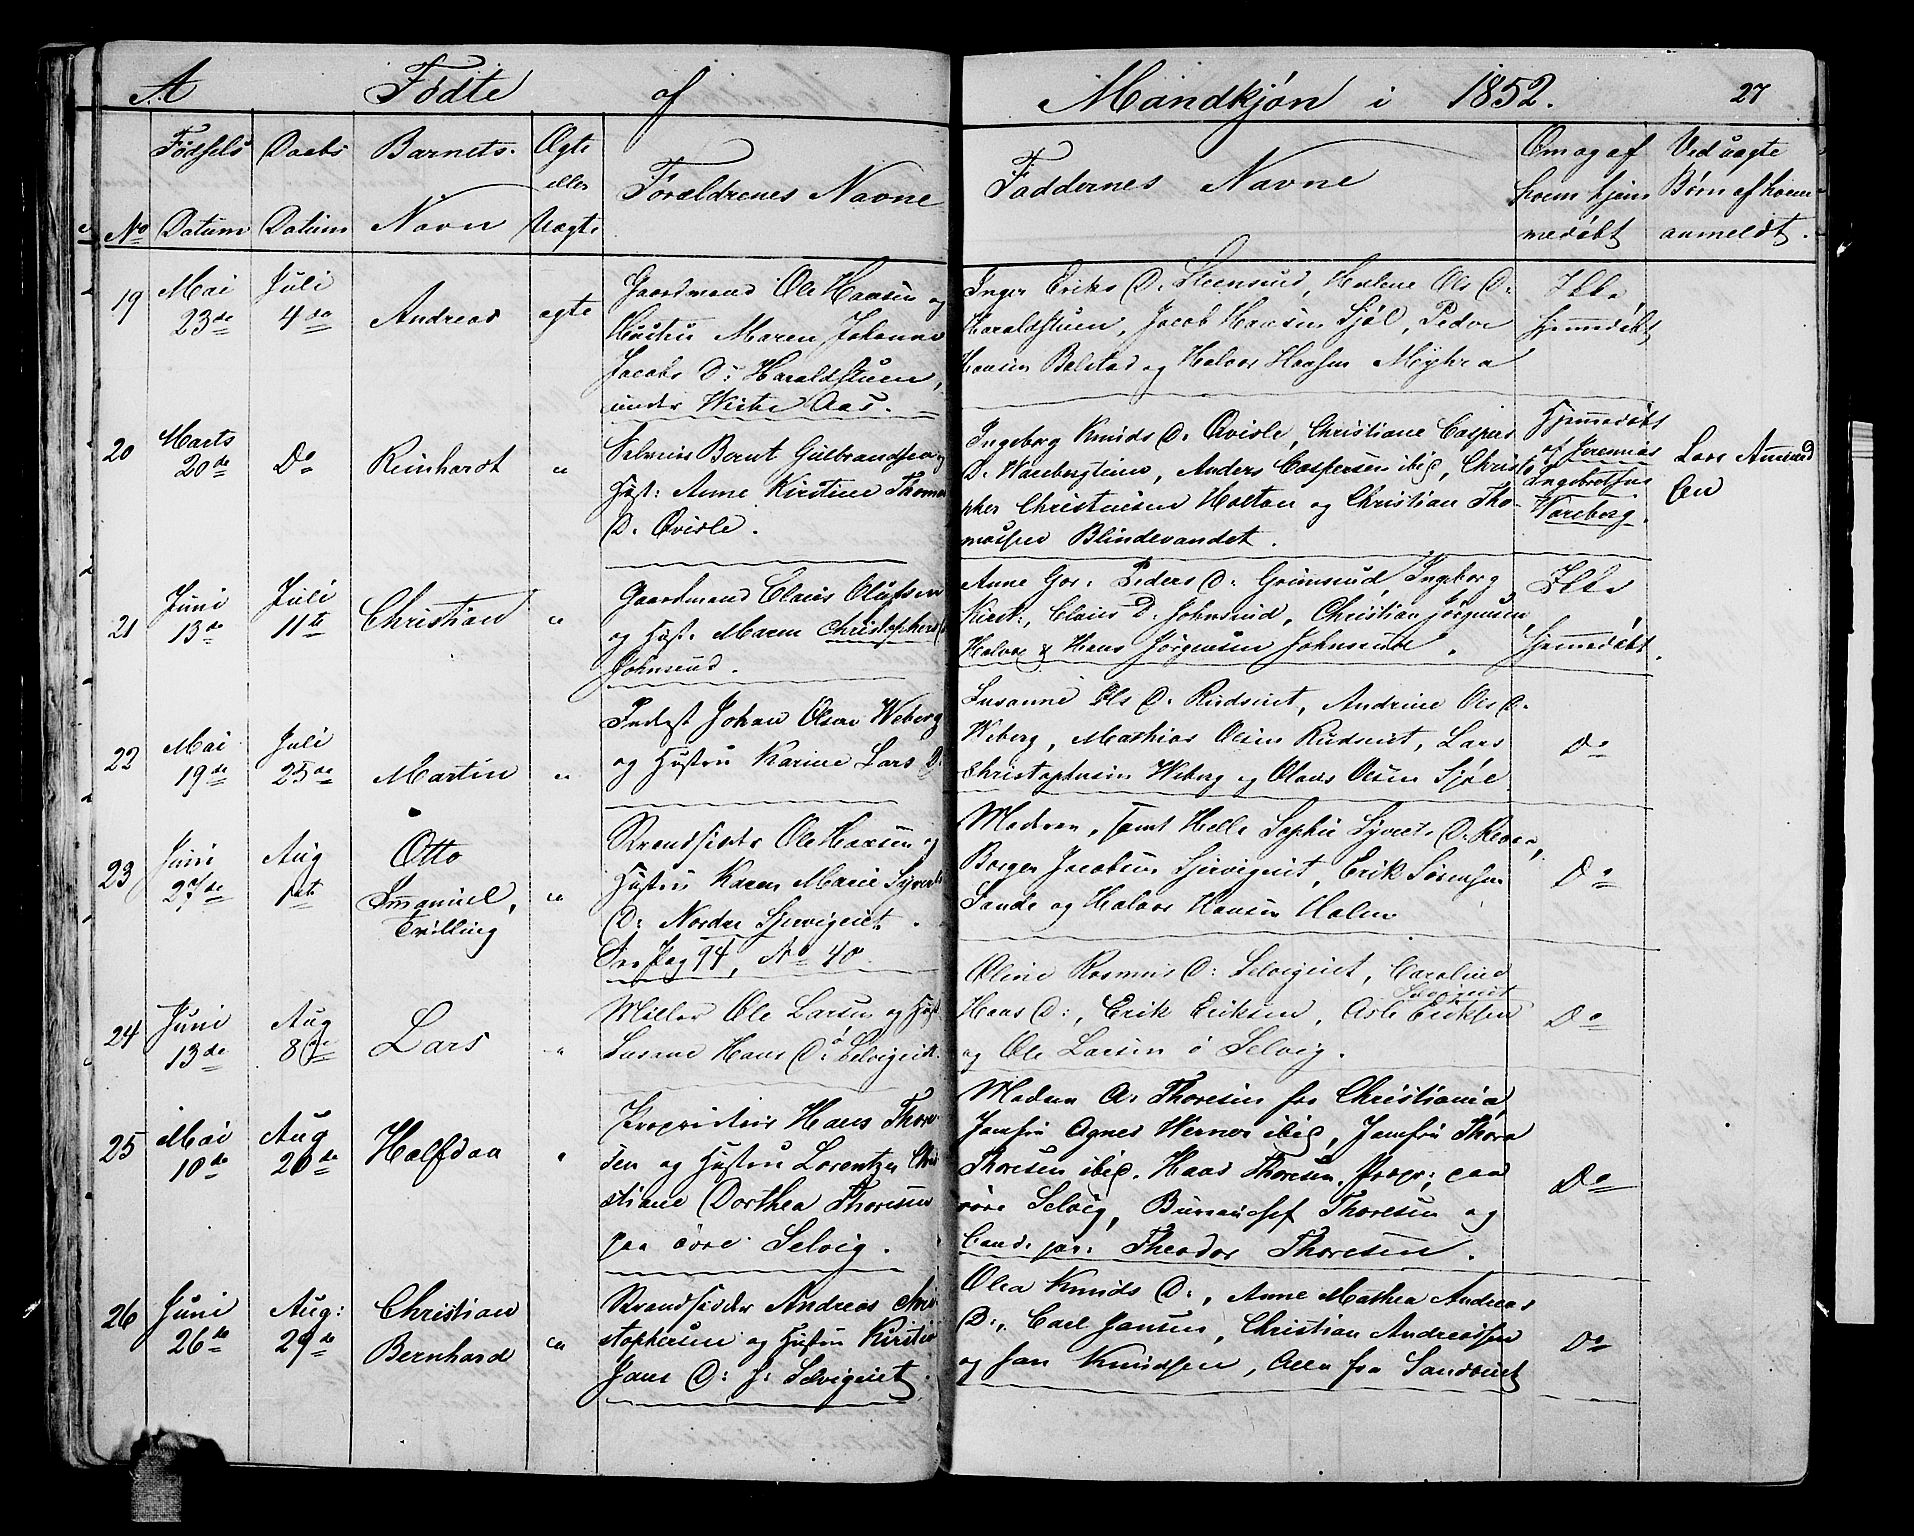 A Fødte af Mandkjøn i 1852. 27
No
Fødsels Datum
Daabs Datum
Barnets Navn
Ægte eller Uægte
Forældrenes Navne
Faddernes Navne
Om og af hvem hjemmedøbt
Ved uægte Børn af hvem anmeldt.
19
Mai 23de
Juli 4de
Andreas
ægte
Gaardmand Ole Hansen og
Hustru Maren Johanne
Jacobs D: Haraldstuen,
under Aas.
Inger Eriks D. Steensrud, Helene Ols D:
Haraldstuen, Jacob Hansen Sjøl, Peder
Hansen Bolstad og Halvor Hansen Myhra
Ikke
hjemmedøbt,
20
Marts 20de
Do
Reinhardt
"
Bernt Gulbrandsen og
Hust: Anne Kirstine Thomas
D. Qvisle.
Ingeborg Knuds D. Qvisle, Christiane Caspers
D. Anders Caspersen ibid, Christo
pher Christensen Holtan og Christian Tho-
massen Blindevandet.
Hjemmedøbt
af Jeremias
Ingebretsen
Wareberg.
Lars Amund
sen
21
Juni 13de
Juli 11te
Christian
"
Gaardmand Claus Olufsen
og Hust. Maren Christophers D
Johnsrud.
Anne Gor: Peders D: Grimsrud, Ingeborg
Kirst:, Claus D. Johnsrud, Christian Jørgensen,
Halvor & Hans Jørgensen Johnsrud.
Ikke
hjemmedøbt.
22
Mai 19de
Juli 25de
Martin
"
Inderst Johan Olsen Weberg
og Hustru Karine Lars D.
Susanne Ols D. Rudsrut, Andrine Ols D.
Weberg, Mathias Olsen Rudsrut, Lars
Christophersen Weberg og Olaus Olsen Sjøl
Do
23
Juni 27de
Aug 1ste
Otto
Imanuel,
Tvilling
"
Strandsidder Ole Hansen og
Hustru Karen Marie Syverts
D: Nordre
See Pag 94, No 40
Moderen, samt Helle Sophie Syverts D.
Borger Jacobsen Erik Sørensen
Sande og Halvor Hansen Holm
Do
24
Juni 13de
Aug 8de
Lars
"
Møller Ole Larsen og Hust
Susane Hans D: Selvigeiet.
Oline Rasmus D: Selvigeiet, Caroline
Selvigeiet
Hans D:, Erik Eriksen, Asle Eriksen
og Ole Larsen i Selvig.
Do
25
Mai 10de
Aug 20de
Halfdan
"
Proprietair Hans Thore-
sen og Hustru Lorentze Chri
stiane Dorthea Thoresen
paa øvre Selvig.
Madam A. Thoresen fra Christiania,
Jomfru Agnes Werner ibid, Jomfru Thora
Thoresen ibid. Haas Thoresen, Propr: paa
øvre Selvig, Bureauchef Thoresen og
Cand. jur: Theodor Thoresen.
Do
26
Juni 26de
Aug: 29de
Christian
Bernhard
"
Strandsidder Andreas Chri-
stophersen og Hustru Kirstine
Jans D: Selvigeiet.
Olea Knuds D:, Anne Mathea Andreas
D:, Carl Jansen, Christian Andreassen
og Jan Knudsen, Alle fra Sandviuet
Do